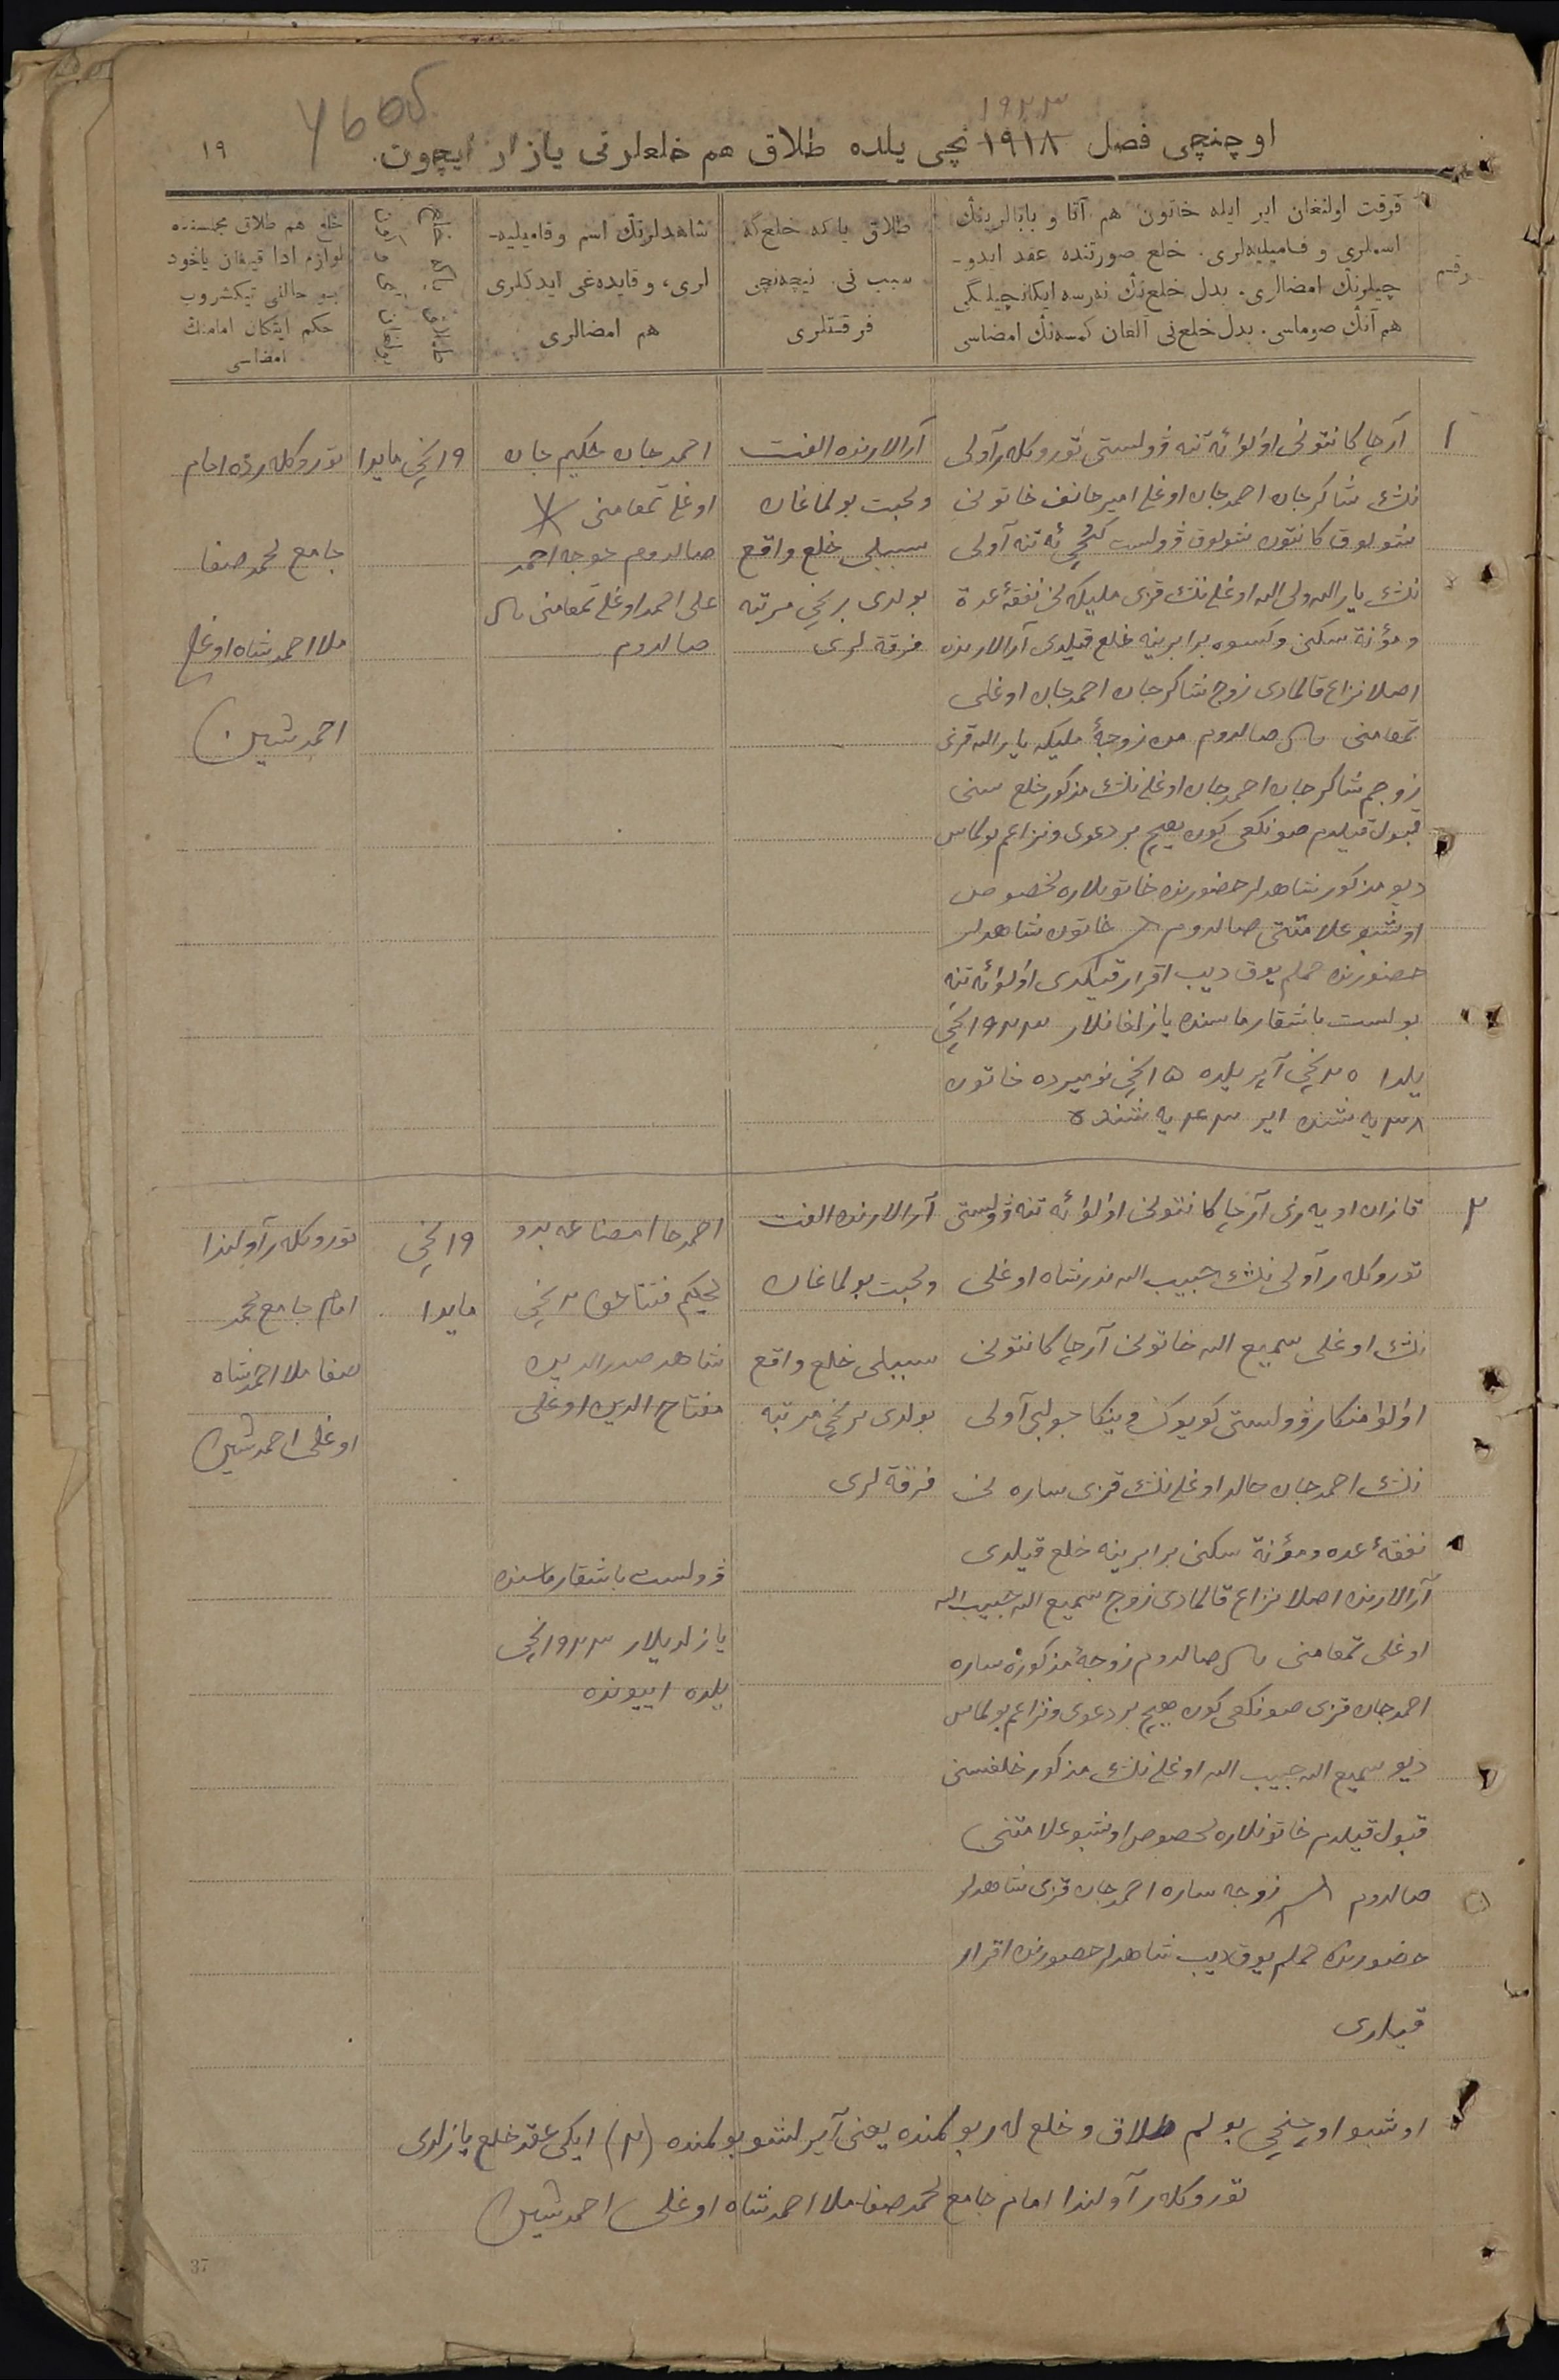 ١٩٢٣
اوچنچی فصل ١٩١٨ نچی یلده طلاق هم خلعلرنی یازار ایچون.
١٩
رقم
فرقت اولنغان ایر ایله خاتون هم آتا و بابالرینڭ
اسملری و فامیلیه‌لری. خلع صورتنده عقد ایدو-
چیلرنڭ امضالری. بدل خلع‌نڭ نەرسە ایکانچیلگی
هم آنڭ صوماسی. بدل خلع‌نی آلغان کمسەنڭ امضاسی
طلاق یا که خلع گه
سبب نی. نیچەنچی
فرقتلری
شاهدلرنڭ اسم و فامیلیه-
لری، و قایده‌غی ایدکلری
هم امضالری
خلع هم طلاق مجلسنده
لوازم ادا قیلغان یاخود
بو حالنی تیکشروب
حکم ایتکان امامنڭ
امضاسی
١
آرچا کانتونی اولوائەتنە ۋولستی توروکلەر آولی
نڭ شاکرجان احمدجان اوغلی امیرجانف خاتونی
شولوق کانتون شولوق ۋولست کچی ئەتنە آولی
نڭ یارالله ولی الله اوغلی‌نڭ قزی ملیکه‌نی نفقۀ عدة
ومؤنة سکنی وکسوه برابرینه خلع قیلدی آرالارنده
اصلا نزاع قالمادی زوج شاکرجان احمدجان اوغلی
تمغامنی صالدوم من زوجۀ ملیکه یارالله قزی
زوجم شاکرجان احمدجان اوغلی‌نڭ مذکور خلع سنی
قبول قیلدم صونکغی کون هیچ بر دعوی ونزاعم بولماس
دیو مذکور شاهدلر حضورنده خاتونلاره مخصوص
اوشبو علامتنی صالدوم خاتون شاهدلر
حضورنده حملم یوق دیب اقرار قیلدی اولوائەتنە
بولست باشقارماسنده یازلغانلار ١٩٢٣ نچی
یلدا ٢٥ نچی آپریلده ١٥ نچی نومیرده خاتون
٣٨ یەشنده ایر ٤٣ یەشنده
آرالارنده الفت
ومحبت بولماغان
سببلی خلع واقع
بولدی برنچی مرتبه
فرقة لری
احمدجان حکیم جان
اوغلی تمغامنی
صالدوم خوجه احمد
علی احمد اوغلی تمغامنی
صالدوم
١٩ نچی مایدا
توروکلەرده امام
جامع محمد صفا
ملا احمدشاه اوغلی
احمدشین
٢
قازان اویه‌زی آرچا کانتونی اولوائەتنە ۋولستی
توروکلەر آولی نڭ حبیب الله نورشاه اوغلی
نڭ اوغلی سمیع الله خاتونی آرچا کانتونی
اولومنکار ۋولستی کویوک آولی
نڭ احمدجان اوغلی‌نڭ قزی ساره نی
نفقۀ عده ومؤنة سکنی برابرینه خلع قیلدی
آرالارنده اصلا نزاع قالمادی زوج سمیع الله حبیب الله
اوغلی تمغامنی صالدوم زوجۀ مذکوره ساره
احمدجان قزی صونکغی کون هیچ بر دعوی ونزاعم بولماس
دیو سمیع الله حبیب الله اوغلی‌نڭ مذکور خلعسنی
قبول قیلدم خاتونلاره مخصوص اوشبو علامتنی
صالدوم زوجه ساره احمدجان قزی شاهدلر
حضورنده حملم یوق دیب شاهدلر حضورنده اقرار
قیلدی
آرالارنده الفت
ومحبت بولماغان
سببلی خلع واقع
بولدی برنچی مرتبه
فرقة لری
شاهد صدرالدین
مفتاح الدین اوغلی
ۋولست باشقارماسنده
یازلدیلار ١٩٢٣ نچی
یلده اییونده
١٩ نچی
مایدا
توروکلەر آولندا
امام جامع محمد
صفا ملا احمدشاه
اوغلی احمدشین
اوشبو اوچنچی بولم طلاق و خلع لەر بولمنده یعنی آیرلشو بولمنده (٢) ایکی عقد خلع یازلدی
توروکلەر آولندا امام جامع محمد صفا ملا احمدشاه اوغلی احمدشین
37